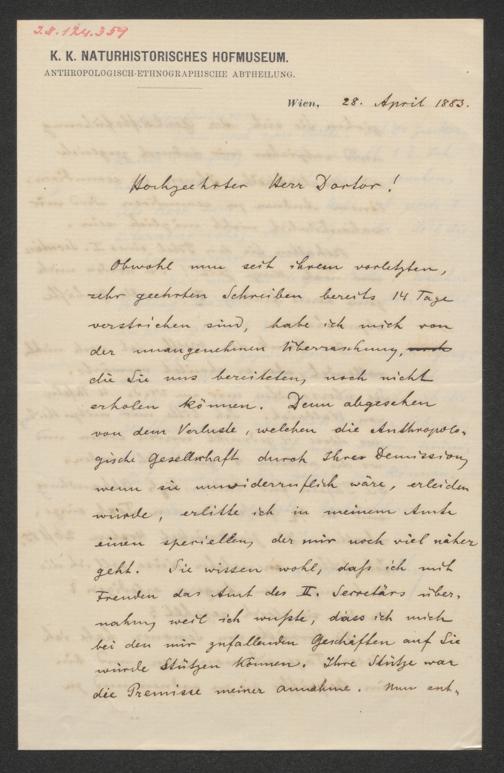 28.124.359
K. K. NATURHISTORISCHES HOFMUSEUM.
ANTHROPOLOGISCH-ETHNOGRAPHISCHE ABTHEILUNG.
Wien, 28. April 1883.
Hochgeehrter Herr Doctor!
Obwohl nun seit ihrem vorletzten,
sehr geehrten Schreiben bereits 14 Tage
verstrichen sind, habe ich mich von
der unangenehmen Überraschung,
die Sie uns bereiteten, noch nicht
erholen können. Denn abgesehen
von dem Verluste, welchen die Anthropolo-
gische Gesellschaft durch Ihre Demission,
wenn sie unwiderruflich wäre, erleiden
würde, erlitte ich in meinem Amte
einen speciellen, der mir noch viel näher
geht. Sie wissen wohl, daß ich mit
Freuden das Amt des II. Secretärs über-
nahm, weil ich wußte, dass ich mich
bei den mir zufallenden Geschäften auf Sie
würde stützen können. Ihre Stütze war
die Premisse meiner annahme. Nun ent-